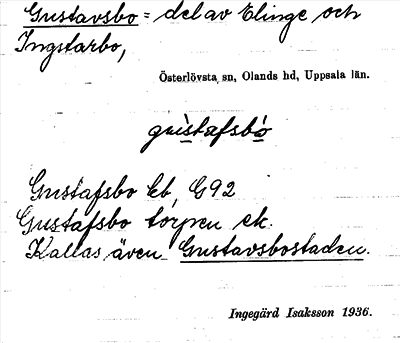 Gustavsbo = del av Elinge och
Ingstarbo,
Österlövsta sn, Olands hd, Uppsala län.
gùstafsbò
Gustafsbo kb, G92
Gustafsbo torpen ek.
Kallas även Gustavsbostaden.
Ingegärd Isaksson 1936.